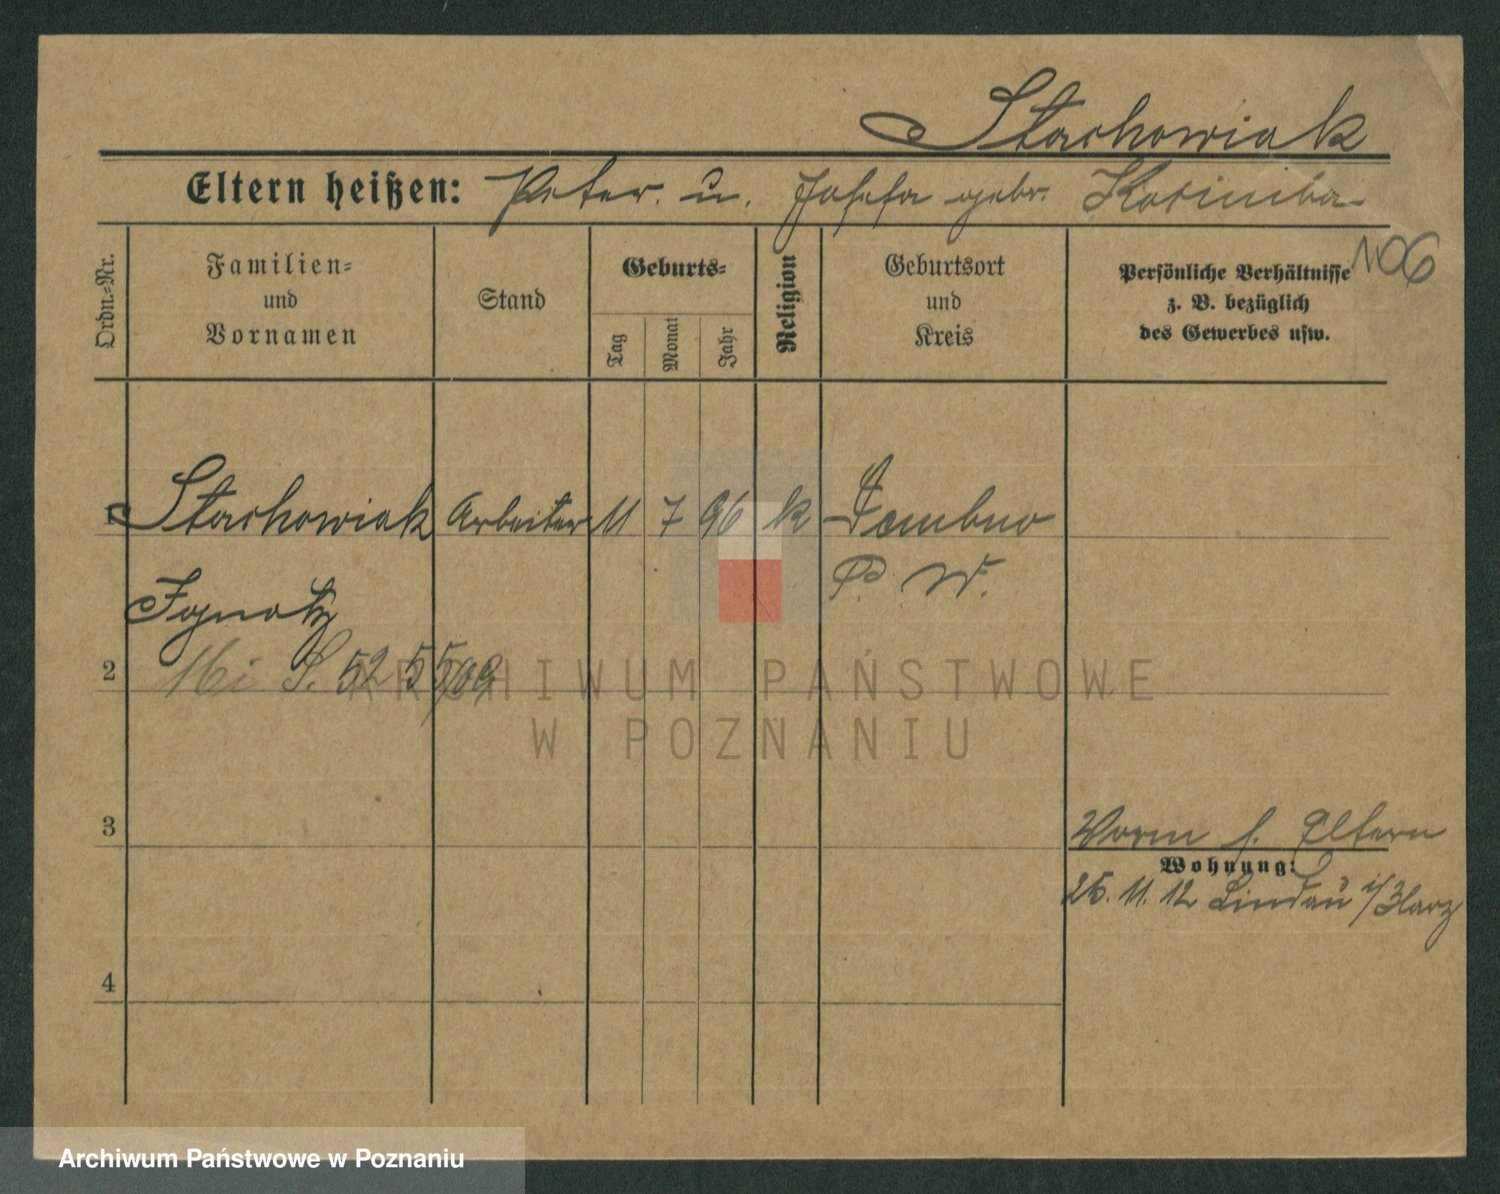 Stachowiak
Eltern heißen: Peter u. Josefa gebr.
Ordn.=Nr.
Familien=
und
Vornamen
Stand
Geburts=
Tag
Monat
Jahr
Religion
Geburtsort
und
Kreis
Persönliche Verhältnisse
z. B. bezüglich
des Gewerbes usw.
1 Stachowiak Arbeiter 11 7 96 k Dembno
Ignatz P. W.
2
ARCHIWUM PAŃSTWOWE
W POZNANIU
3 Vorm s. Eltern
Wohnung:
25. 11. 12 Lindau i/Harz
4
Archiwum Państwowe w Poznaniu